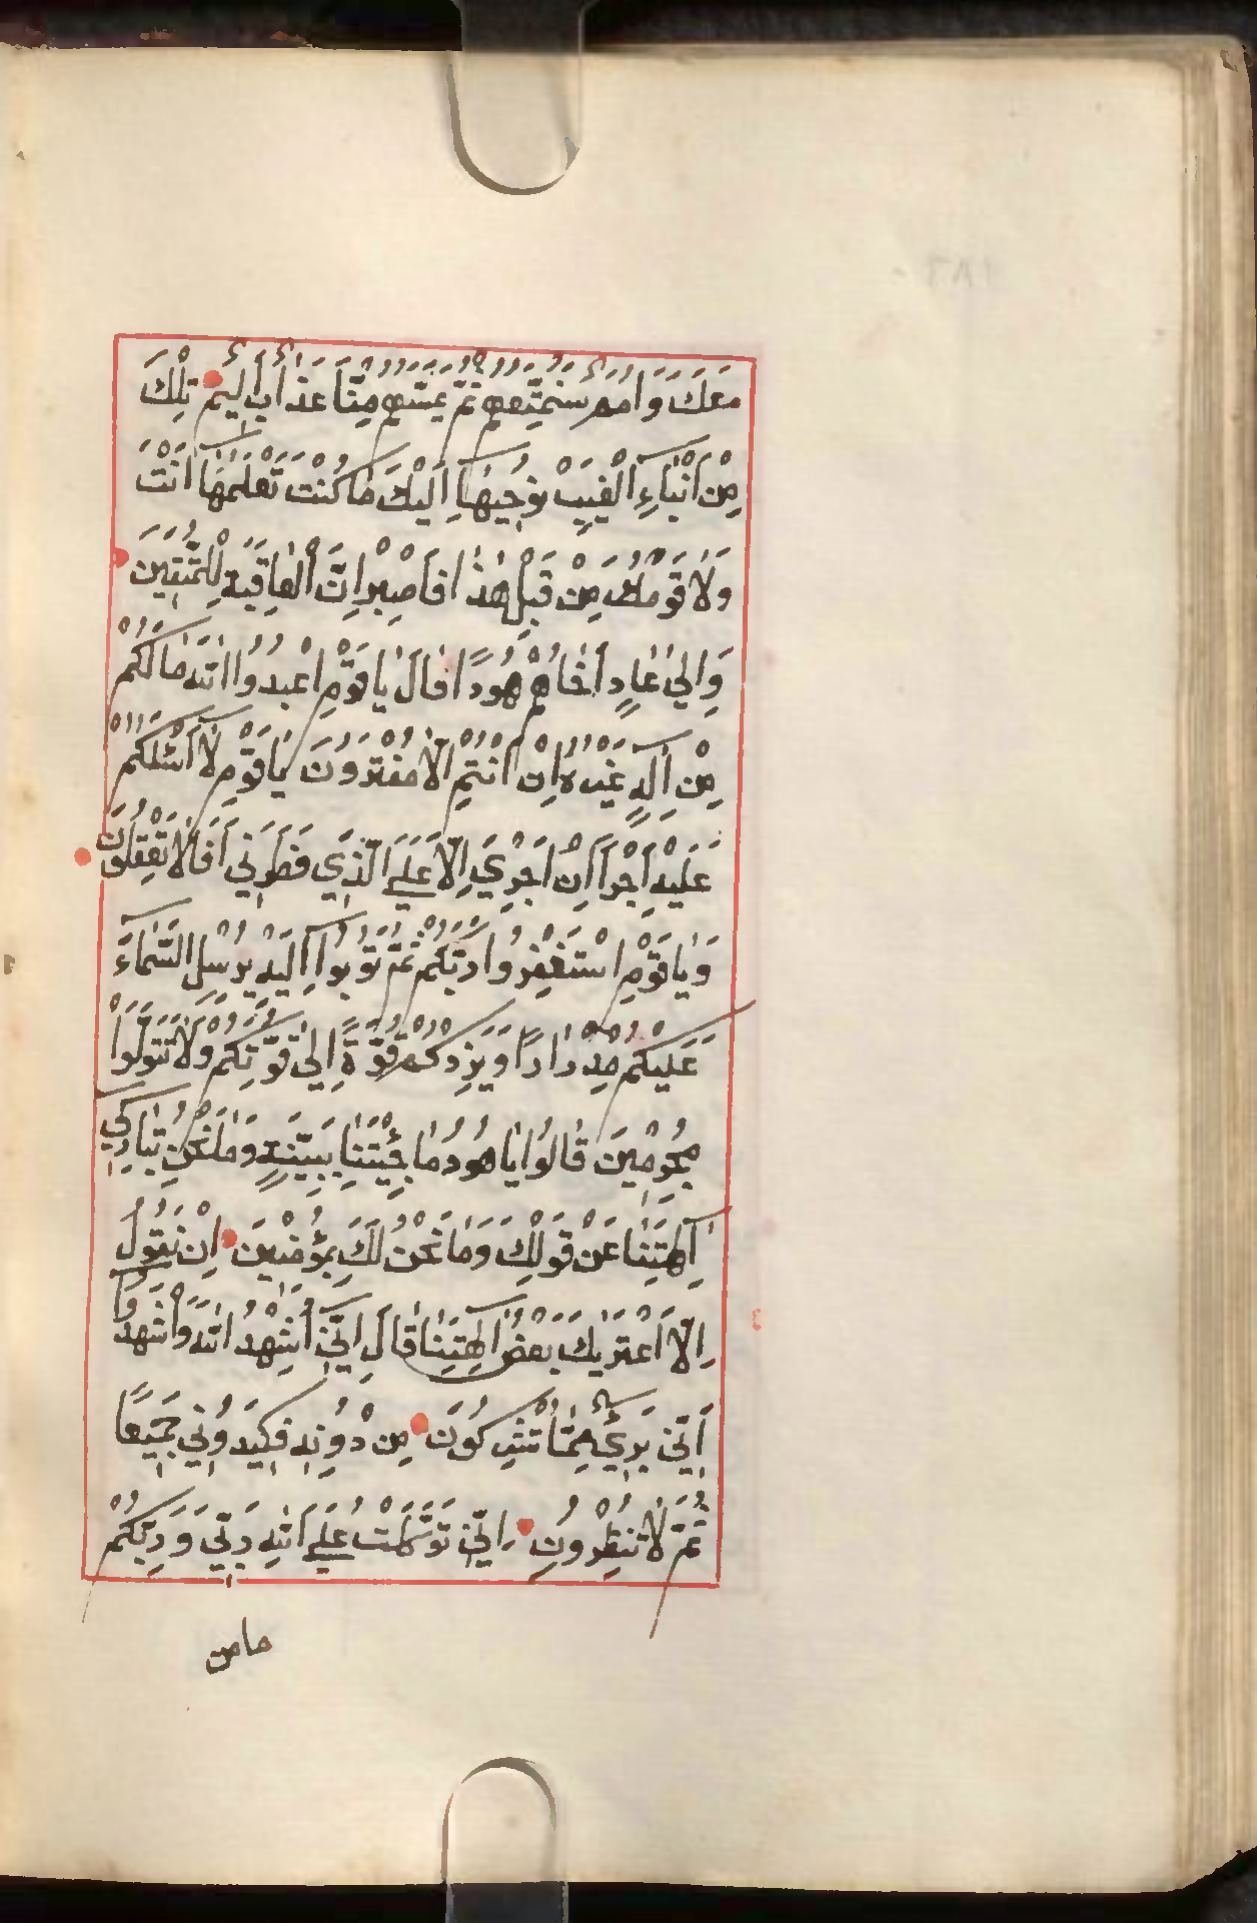 مَعَكَ وَاُمَمٌ سَنُمَتِّعُهُمْ ثُمَّ يَمَسُّهُمْ مِنَّا عَذَابٌ اَلِيمٌ تِلْكَ
مِنْ اَنْبَآءِ الْغَيْبِ نُوحِيهَآ اِلَيْكَ مَا كُنْتَ تَعْلَمُهَآ اَنْتَ
وَلَا قَوْمُكَ مِنْ قَبْلِ هٰذَا فَاصْبِرْ اِنَّ الْعَاقِبَةَ لِلْمُتَّقِينَ
وَاِلٰى عَادٍ اَخَاهُمْ هُودًا قَالَ يَا قَوْمِ اعْبُدُوا اللّٰهَ مَا لَكُمْ
مِنْ اِلٰهٍ غَيْرُهُ اِنْ اَنْتُمْ اِلَّا مُفْتَرُونَ يَا قَوْمِ لَآ اَسْئَلُكُمْ
عَلَيْهِ اَجْرًا اِنْ اَجْرِيَ اِلَّا عَلَى الَّذِي فَطَرَنِي اَفَلَا تَعْقِلُونَ
وَيَا قَوْمِ اسْتَغْفِرُوا رَبَّكُمْ ثُمَّ تُوبُوآ اِلَيْهِ يُرْسِلِ السَّمَآءَ
عَلَيْكُمْ مِدْرَارًا وَيَزِدْكُمْ قُوَّةً اِلٰى قُوَّتِكُمْ وَلَا تَتَوَلَّوْا
مُجْرِمِينَ قَالُوا يَا هُودُ مَا جِئْتَنَا بِبَيِّنَةٍ وَمَا نَحْنُ بِتَارِكِي
اٰلِهَتِنَا عَنْ قَوْلِكَ وَمَا نَحْنُ لَكَ بِمُؤْمِنِينَ اِنْ نَقُولُ
اِلَّا اعْتَرٰيكَ بَعْضُ اٰلِهَتِنَا قَالَ اِنِّي اُشْهِدُ اللّٰهَ وَاشْهَدُوا
اَنِّي بَرِيءٌ مِمَّا تُشْرِكُونَ مِنْ دُونِهِ فَكِيدُونِي جَمِيعًا
ثُمَّ لَا تُنْظِرُونِ اِنِّي تَوَكَّلْتُ عَلَى اللّٰهِ رَبِّي وَرَبِّكُمْ
مامن